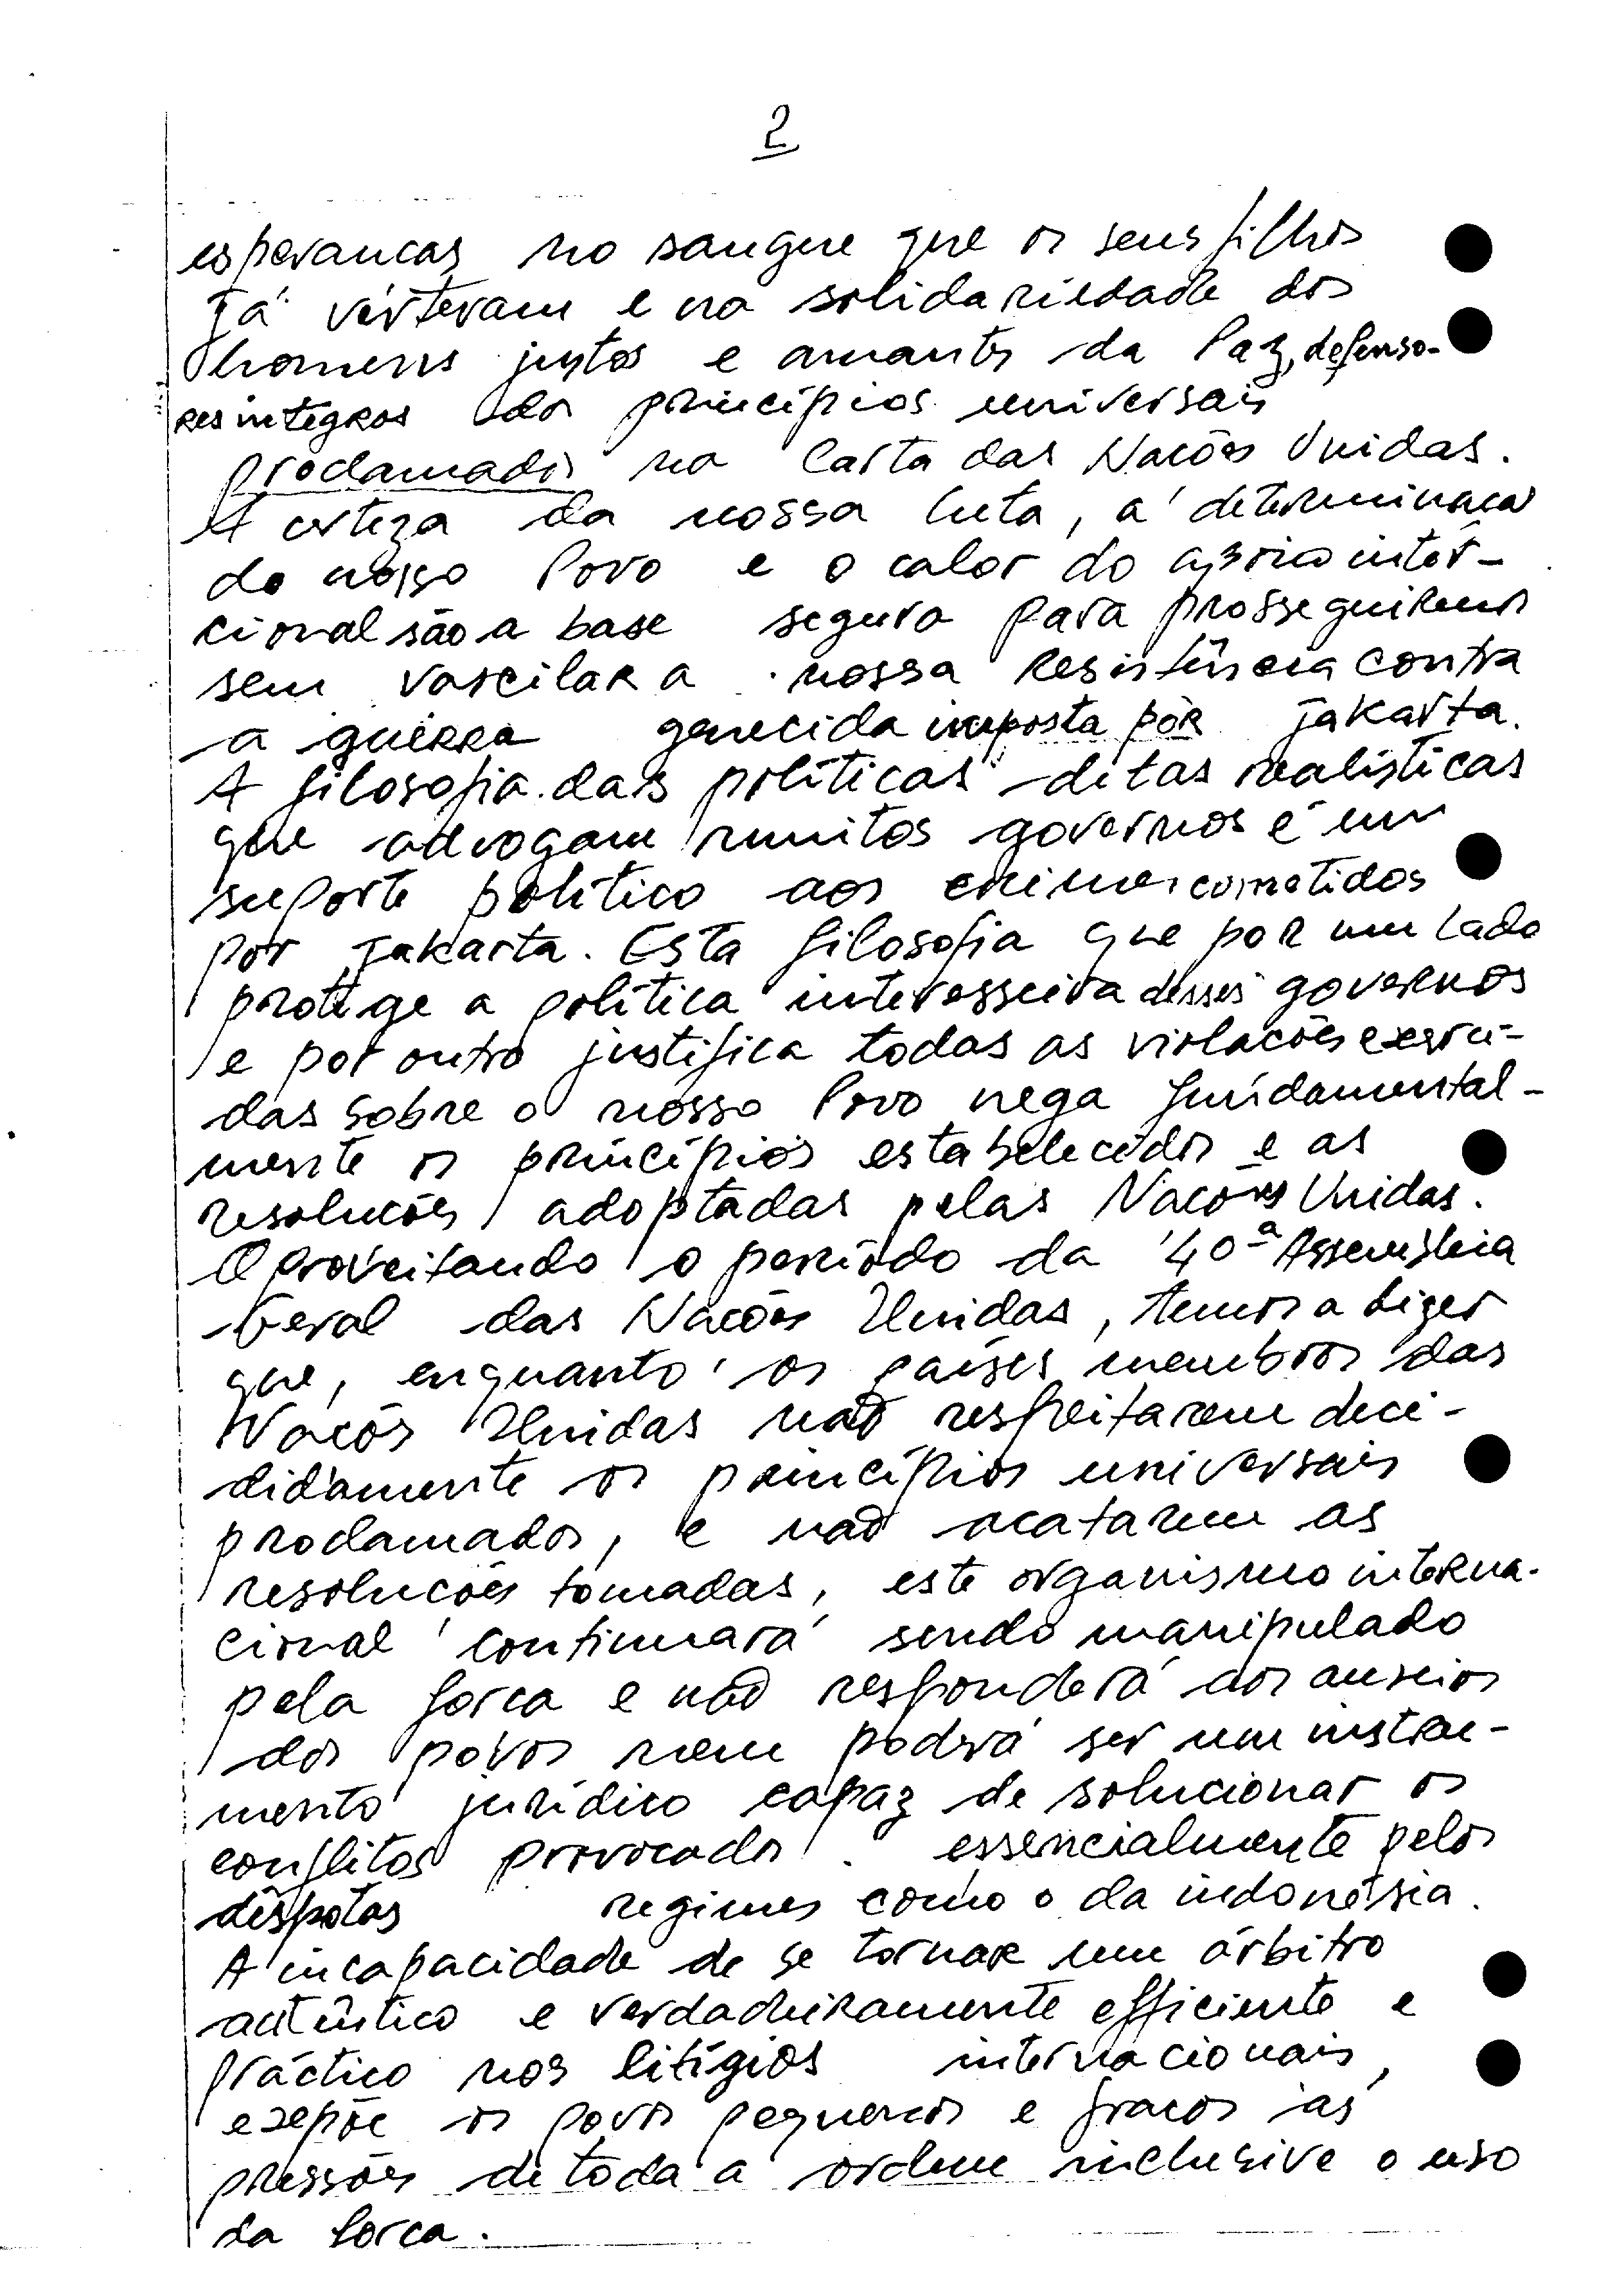 2
esperancas no sangue que os seus filhos
Já verteram e na solidariedade dos
homens justos e amantes da Paz, defenso-
res integros dos princípios universais
proclamados na Carta das Nacões Unidas.
A certeza da nossa luta, a determinacao
do nosso Povo e o calor do apoio inter-
cional são a base segura para prosseguirmos
sem vascilar a nossa resistência contra
a guerra genecida imposta por jakarta.
A filosofia das políticas ditas realísticas
que advogam muitos governos é um
suporte político aos crimes cometidos
por Jakarta. Esta filosofia que por um lado
protege a política interesseira desses governos
e por outro justifica todas as violacões exerci-
das sobre o nosso Povo nega fundamental-
mente os princípios estabelecidos e as
resolucões adoptadas pelas Nacões Unidas.
Aproveitando o período da 40ª Assembleia
Geral das Nacões Unidas, temos a dizer
que, enquanto os países membros das
Nacões Unidas não respeitarem deci-
didamente os princípios universais
proclamados, e não acatarem as
resolucões tomadas, este organismo interna-
cional continuará sendo manipulado
pela forca e não responderá aos anseios
dos povos nem poderá ser um instru-
mento jurídico capaz de solucionar os
conflitos provocados essencialmente pelos
déspotas regimes como o da indonésia.
A incapacidade de se tornar um árbitro
autêntico e verdadeiramente efficiente e
práctico nos litígios internacionais,
exepõe os povos pequenos e fracos às
pressões de toda a ordem inclusive o uso
da forca.